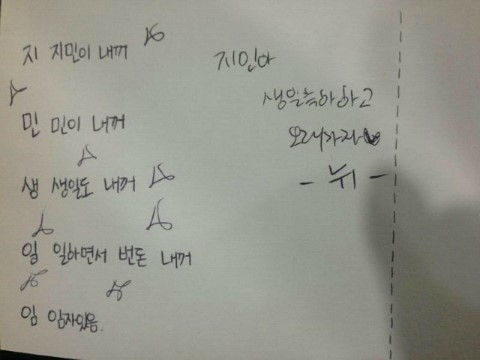 지 지민이 내꺼
민 민이 내꺼
생 생일도 내꺼
일 일하면서 번돈 내꺼
임 임자있음.
지민아
생일축하하고
오래가자
- 뷔 -